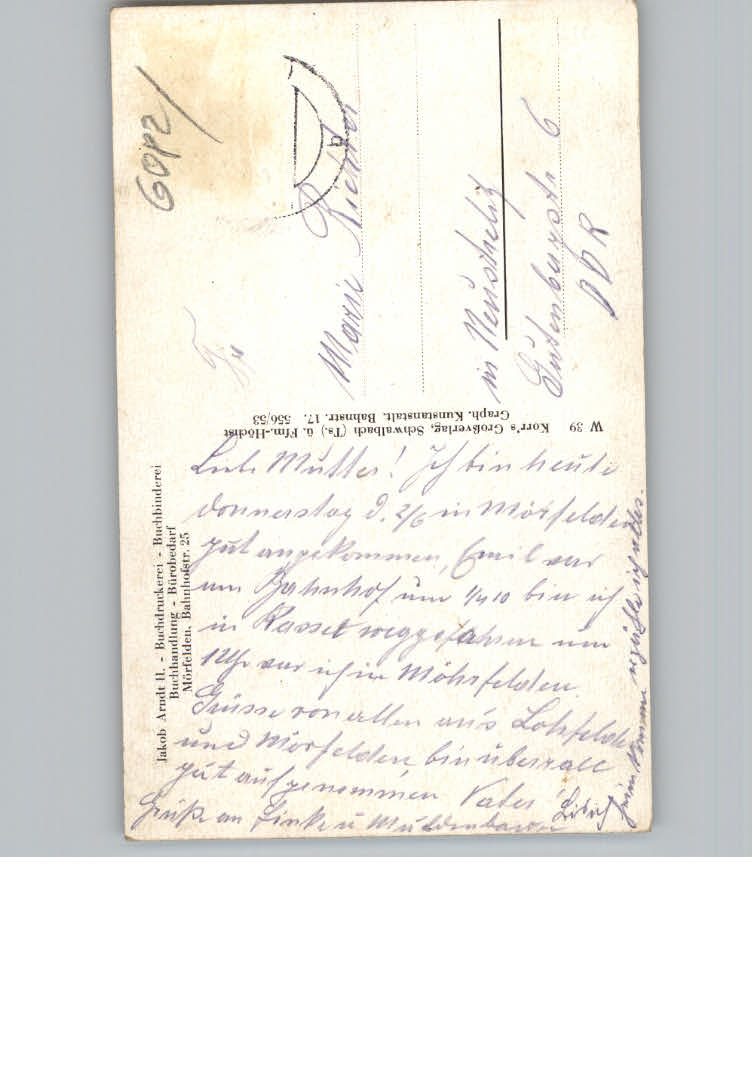 Jakob Arndt II. - Buchdruckerei - Buchbinderei
Buchhandlung - Bürobedarf
Mörfelden, Bahnhofstr. 25
Liebe Mutter! Ich bin heute
Donnerstag d. 2/6 in Mörfelden
gut angekommen, Emil war
am Bahnhof um 1/4 10 bin ich
in Kassel weggefahren um
1 Uhr war ich in Möhrfelden.
Grüsse von allen aus
und Mörfelden bin überall
gut aufgenommen Vater
Grüße an Linke u
wenn ich
W 39 Korr's Großverlag, Schwalbach (Ts.) ü. Ffm.-Höchst
Graph. Kunstanstalt. Bahnstr. 17. 556/53
GOPZ/
Marie Richter
in Neustrelitz
Gutenbergstr 6
DDR